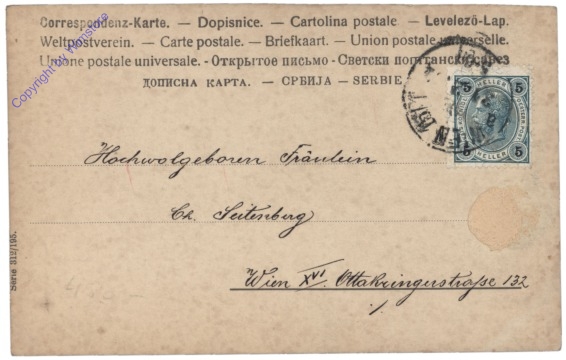 Correspondenz-Karte. — Dopisnice. — Cartolina postale. — Levelező-Lap.
Weltpostverein. — Carte postale. — Briefkaart. — Union postale universelle.
Unione postale universale. - Открытое письмо - Светски поштански савез
ДОПИСНА КАРТА. — СРБИЈА — SERBIE
Copyright by Hamstore
5 5
HELLER
5 5
HELLER
WIEN
Hochwolgeboren Fräulein
Ch. Seitenberg
Wien XVI Ottakringerstraße 132
Serie 312/195.